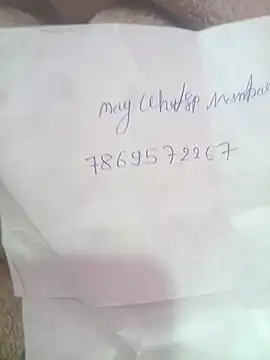 may Whatsp numbar
7869572267